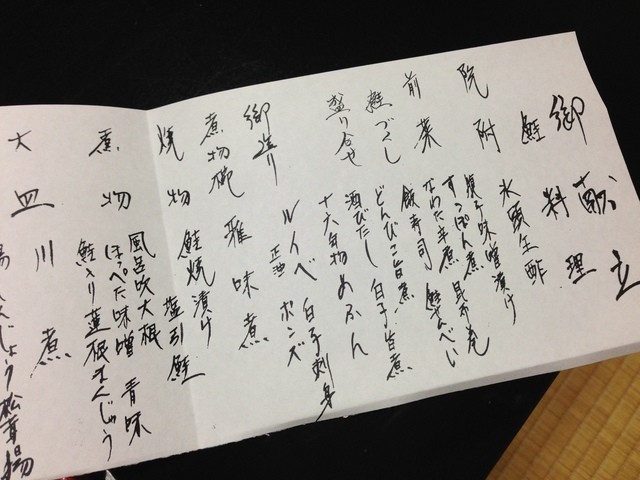 御献立
鮭料理
院附 氷頭生酢
前菜 鮭づくし 盛り合せ
筋子味噌漬け
すっぽん煮 昆布巻
なわた辛煮 鮭せんべい
飯寿司
どんびこ旨煮 白子旨煮
酒びたし めふん
十六年物
御造り ルイベ 白子刺身
正油 ポンズ
煮物椀 雅味煮
焼物 鮭焼漬け
塩引鮭
煮物 風呂吹大根
ほっぺた味噌 青味
鮭入り蓮根まんじゅう
大皿 川煮
松茸揚